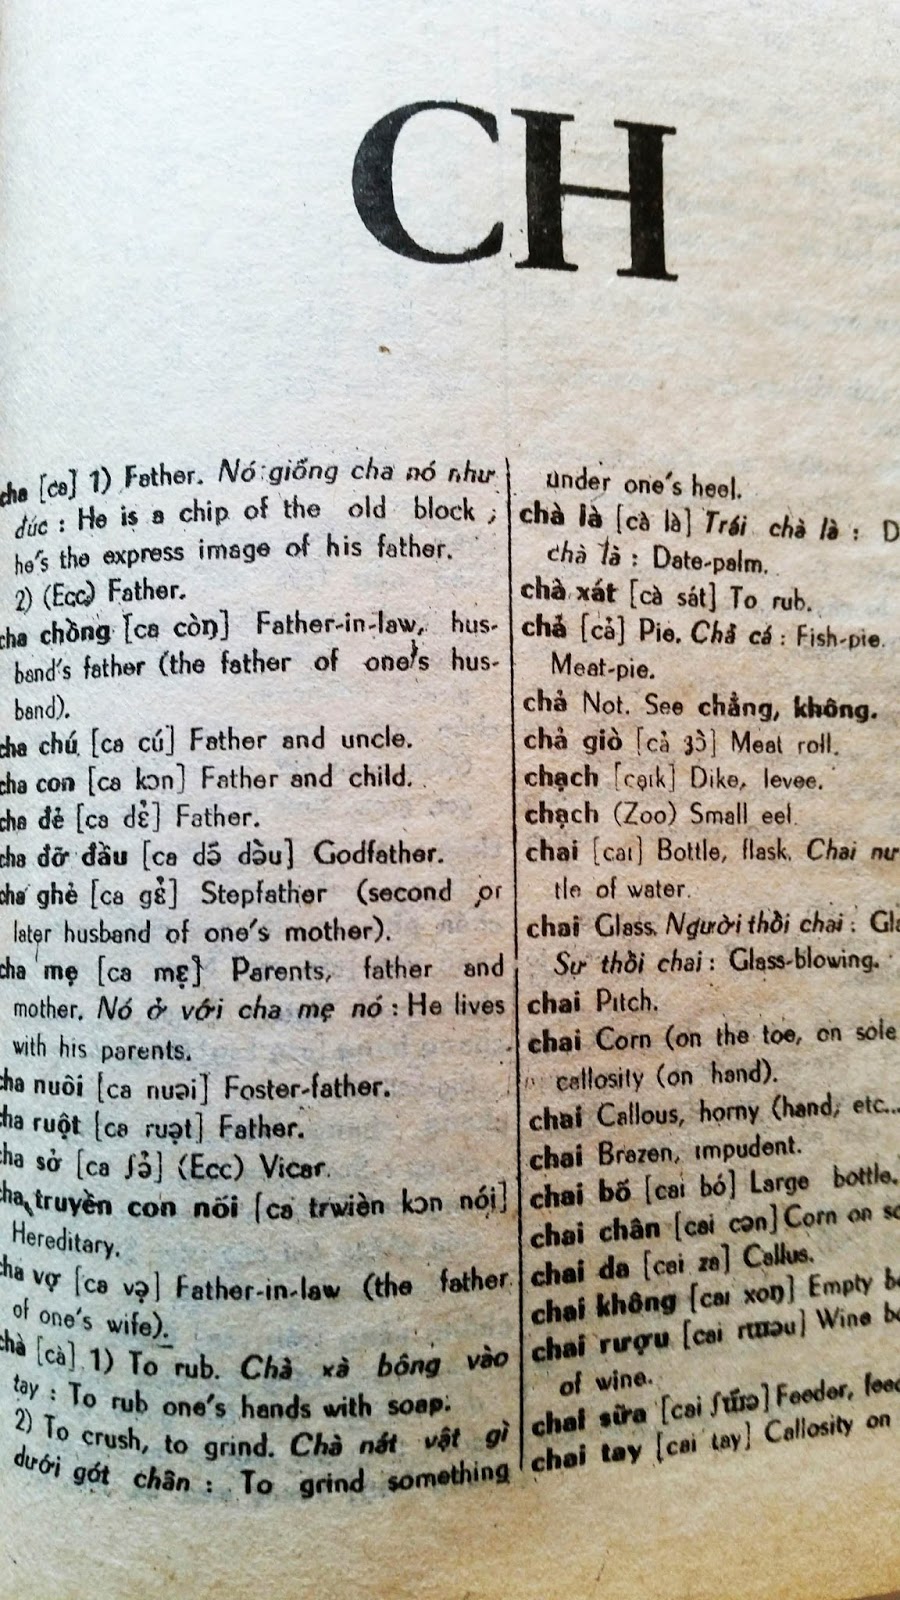 CH
cha [ca] 1) Father. Nó giống cha nó như
đúc : He is a chip of the old block ;
he's the express image of his father.
2) (Ecc) Father.
cha chồng [ca còŋ] Father-in-law, hus-
band's father (the father of one's hus-
band).
cha chú [ca cú] Father and uncle.
cha con [ca kɔn] Father and child.
cha đẻ [ca dɛ̉] Father.
cha đỡ đầu [ca də̃ də̀u] Godfather.
cha ghẻ [ca gɛ̉] Stepfather (second or
later husband of one's mother).
cha mẹ [ca mɛ̣] Parents, father and
mother. Nó ở với cha mẹ nó : He lives
with his parents.
cha nuôi [ca nuəi] Foster-father.
cha ruột [ca ruə̣t] Father.
cha sở [ca ʃə̉] (Ecc) Vicar.
cha truyền con nối [ca trwièn kɔn nói]
Hereditary.
cha vợ [ca və̣] Father-in-law (the father
of one's wife).
chà [cà] 1) To rub. Chà xà bông vào
tay : To rub one's hands with soap.
2) To crush, to grind. Chà nát vật gì
dưới gót chân : To grind something
under one's heel.
chà là [cà là] Trái chà là : D
chà là : Date-palm.
chà xát [cà sát] To rub.
chả [cả] Pie. Chả cá : Fish-pie.
Meat-pie.
chả Not. See chẳng, không.
chả giò [cả ʒɔ̀] Meat roll.
chạch [cạik] Dike, levee.
chạch (Zoo) Small eel.
chai [cai] Bottle, flask. Chai nư
tle of water.
chai Glass. Người thồi chai : Gla
Sự thồi chai : Glass-blowing.
chai Pitch.
chai Corn (on the toe, on sole
callosity (on hand).
chai Callous, horny (hand, etc...
chai Brazen, impudent.
chai bố [cai bó] Large bottle.
chai chân [cai cən] Corn on so
chai da [cai za] Callus.
chai không [cai xoŋ] Empty bo
chai rượu [cai rɯə̣u] Wine bo
of wine.
chai sữa [cai ʃɯ̃ə] Feeder, feed
chai tay [cai tay] Callosity on